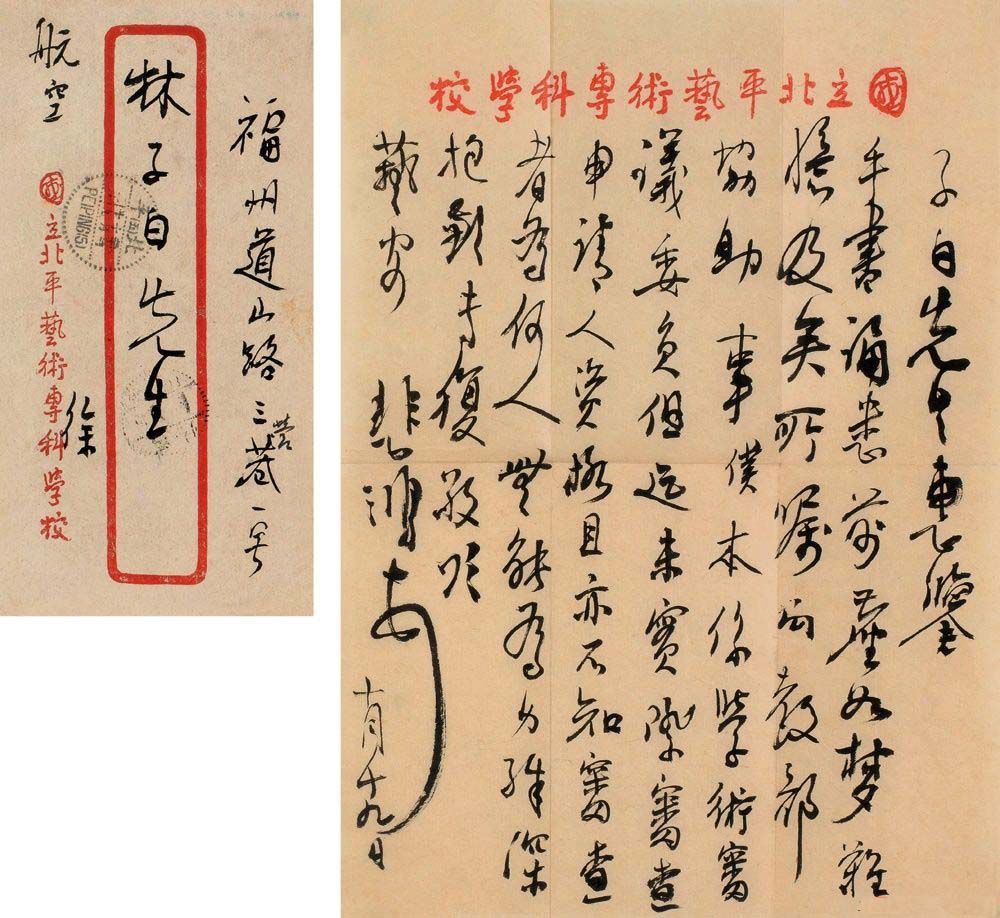 福州道山路三營巷一号
林子白先生
航空
徐
國立北平藝術專科學校
PEIPING(5)
國立北平藝術專科學校
子白先生惠鑒
手書誦悉前塵如夢難
憶及矣所囑向教部
協助一事僕本係學術審
議委員但迄未實際審查
申請人資格且亦不知審查
者為何人無能為力殊深
抱歉專復敬頌
藝安
悲鴻 
十月十九日